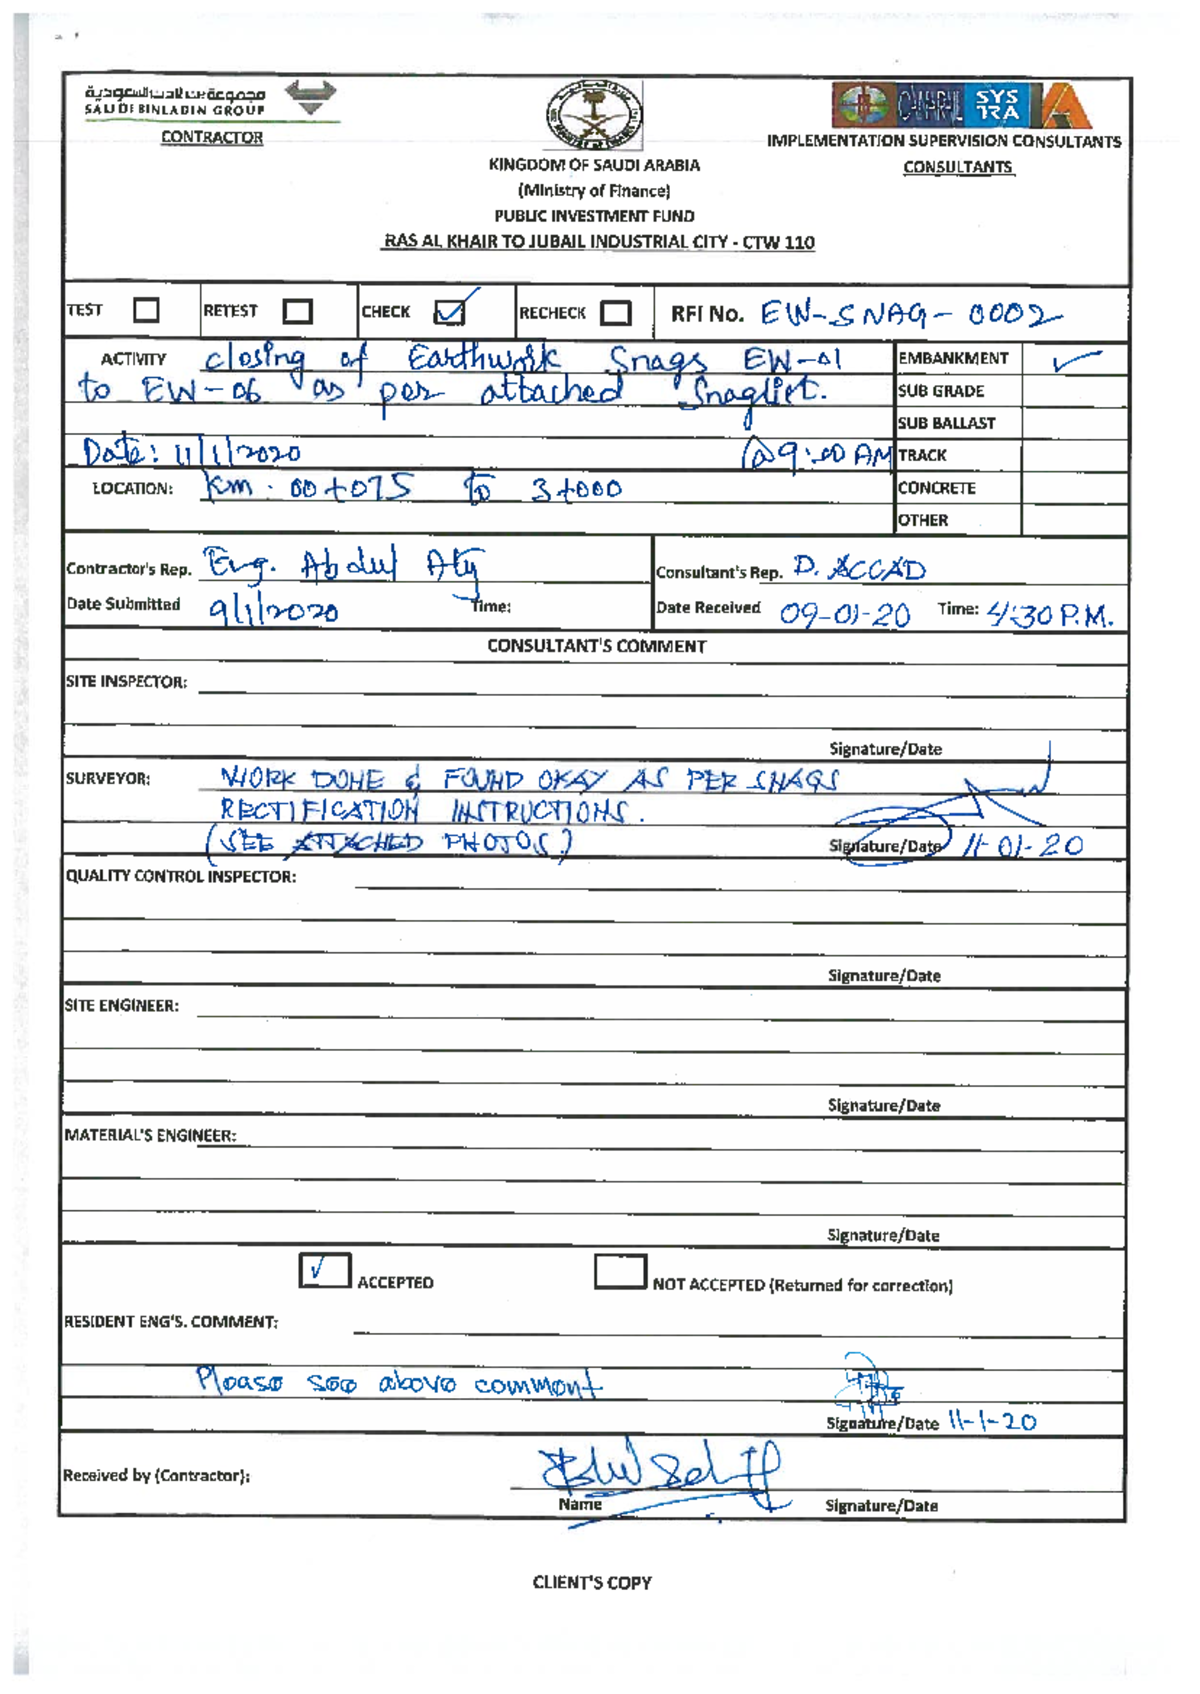 مجموعة بن لادن السعودية
SAUDI BINLADIN GROUP
CONTRACTOR
SYSTRA
IMPLEMENTATION SUPERVISION CONSULTANTS
CONSULTANTS
KINGDOM OF SAUDI ARABIA
(Ministry of Finance)
PUBLIC INVESTMENT FUND
RAS AL KHAIR TO JUBAIL INDUSTRIAL CITY - CTW 110
TEST RETEST CHECK RECHECK RFI No. EW-SNAG-0002
ACTIVITY closing of Earthwork Snags EW-01 EMBANKMENT
to EW-06 as per attached Snaglist. SUB GRADE
SUB BALLAST
Date: 11/1/2020 @9:00 AM TRACK
LOCATION: Km. 00+075 to 3+000 CONCRETE
OTHER
Contractor's Rep. Eng. Abdul Aty Consultant's Rep. D. ACCAD
Date Submitted 9/1/2020 Time: Date Received 09-01-20 Time: 4:30 P.M.
CONSULTANT'S COMMENT
SITE INSPECTOR:
Signature/Date
SURVEYOR: WORK DONE & FOUND OKAY AS PER SNAGS
RECTIFICATION INSTRUCTIONS.
(SEE ATTACHED PHOTOS) Signature/Date 11-01-20
QUALITY CONTROL INSPECTOR:
Signature/Date
SITE ENGINEER:
Signature/Date
MATERIAL'S ENGINEER:
Signature/Date
ACCEPTED NOT ACCEPTED (Returned for correction)
RESIDENT ENG'S. COMMENT:
Please see above comment
Signature/Date 11-1-20
Received by (Contractor):
Name Signature/Date
CLIENT'S COPY